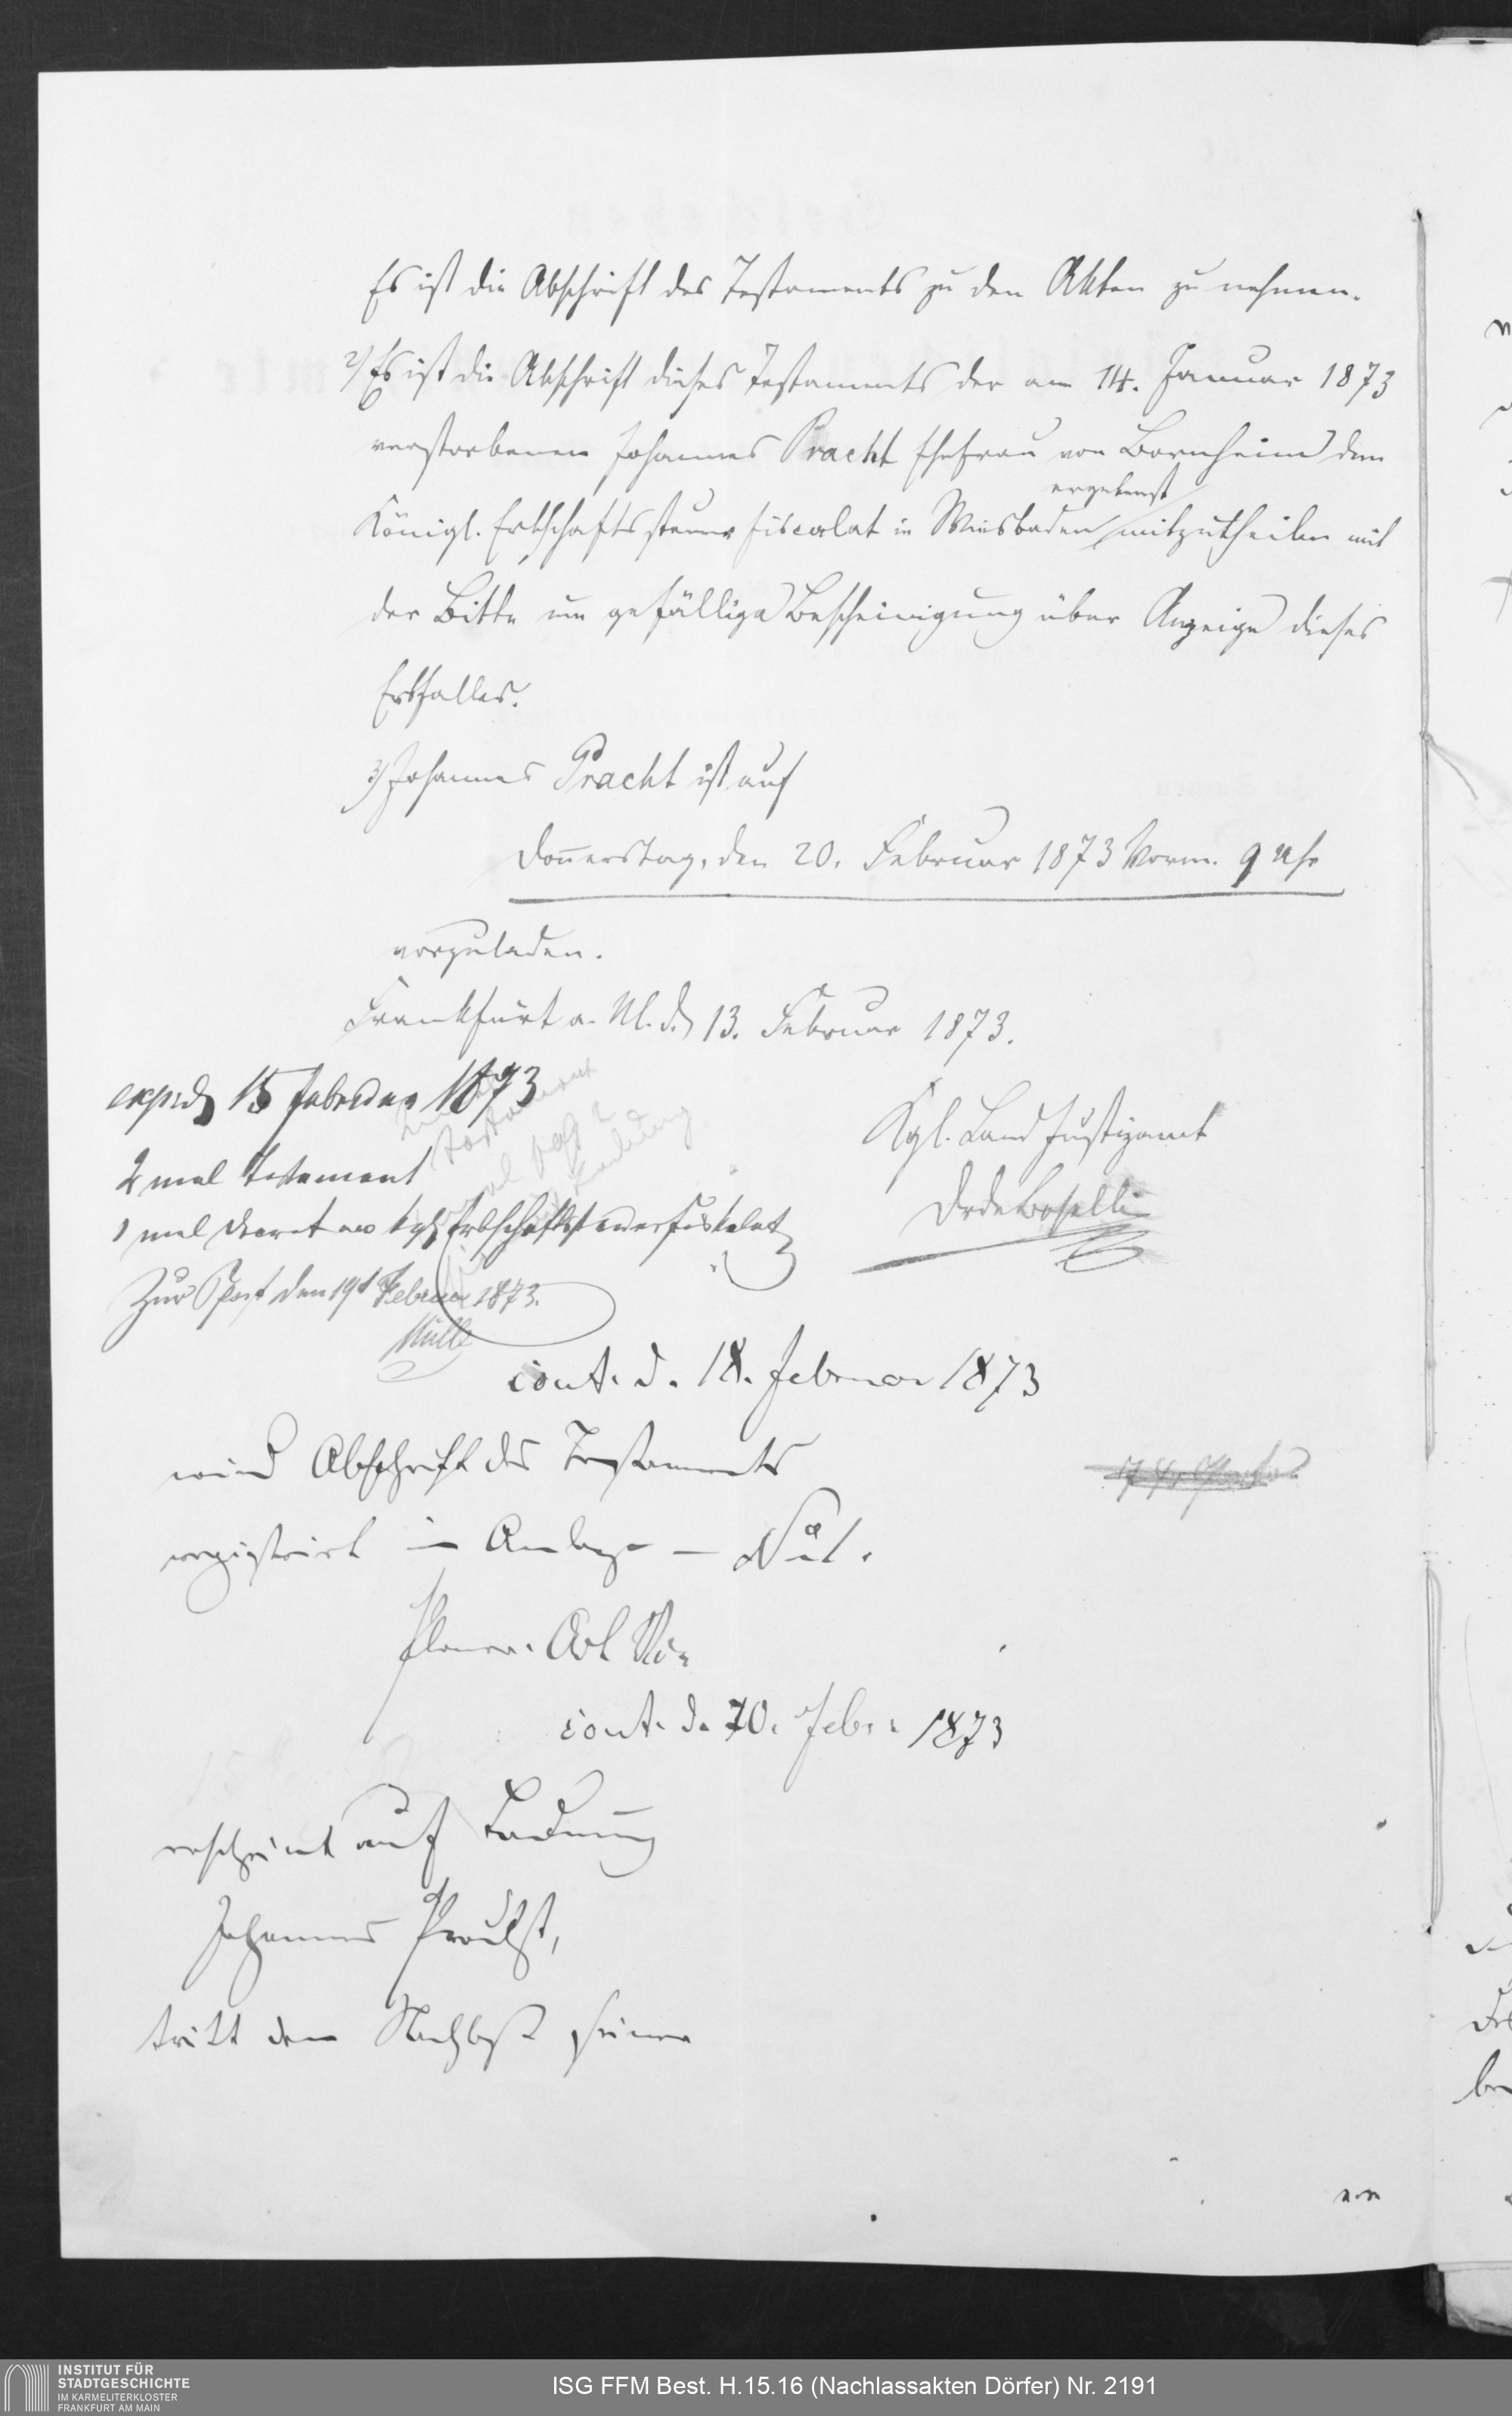 Es ist die Abschrift des Testaments zu den Akten zu nehmen.
2) Es ist die Abschrift dieses Testaments der am 14. Januar 1873
verstorbenen Johannes Pracht Ehefrau von Bornheim dem
ergebenst
Königl. Erbschaftssteuer fiscalat in Wiesbaden mitzutheilen mit
der Bitte um gefällige Bescheinigung über Anzeige dieses
Erbfalles.
3) Johannes Pracht ist auf
Donnerstag, den 20. Februar 1873 Vorm. 9 Uhr
vorzuladen.
Frankfurt a. M. d. 13. Februar 1873.
exped 15 Februar 1873
Testament
Ladung
Kgl. Land Justizamt
2 mal Testament
Dr de Boselli
1 mal Decret an kgl Erbschaftssteuerfiskalat
Zur Post den 19t Februar 1873.
Müller
cont. d. 18. Februar 1873
wird Abschrift des Testaments
registrirt in Anlage —
cont. d. 20. Febr. 1873
erscheint auf Ladung
Johannes Pracht,
tritt den Nachlaß seiner
INSTITUT FÜR
STADTGESCHICHTE
IM KARMELITERKLOSTER
FRANKFURT AM MAIN
ISG FFM Best. H.15.16 (Nachlassakten Dörfer) Nr. 2191